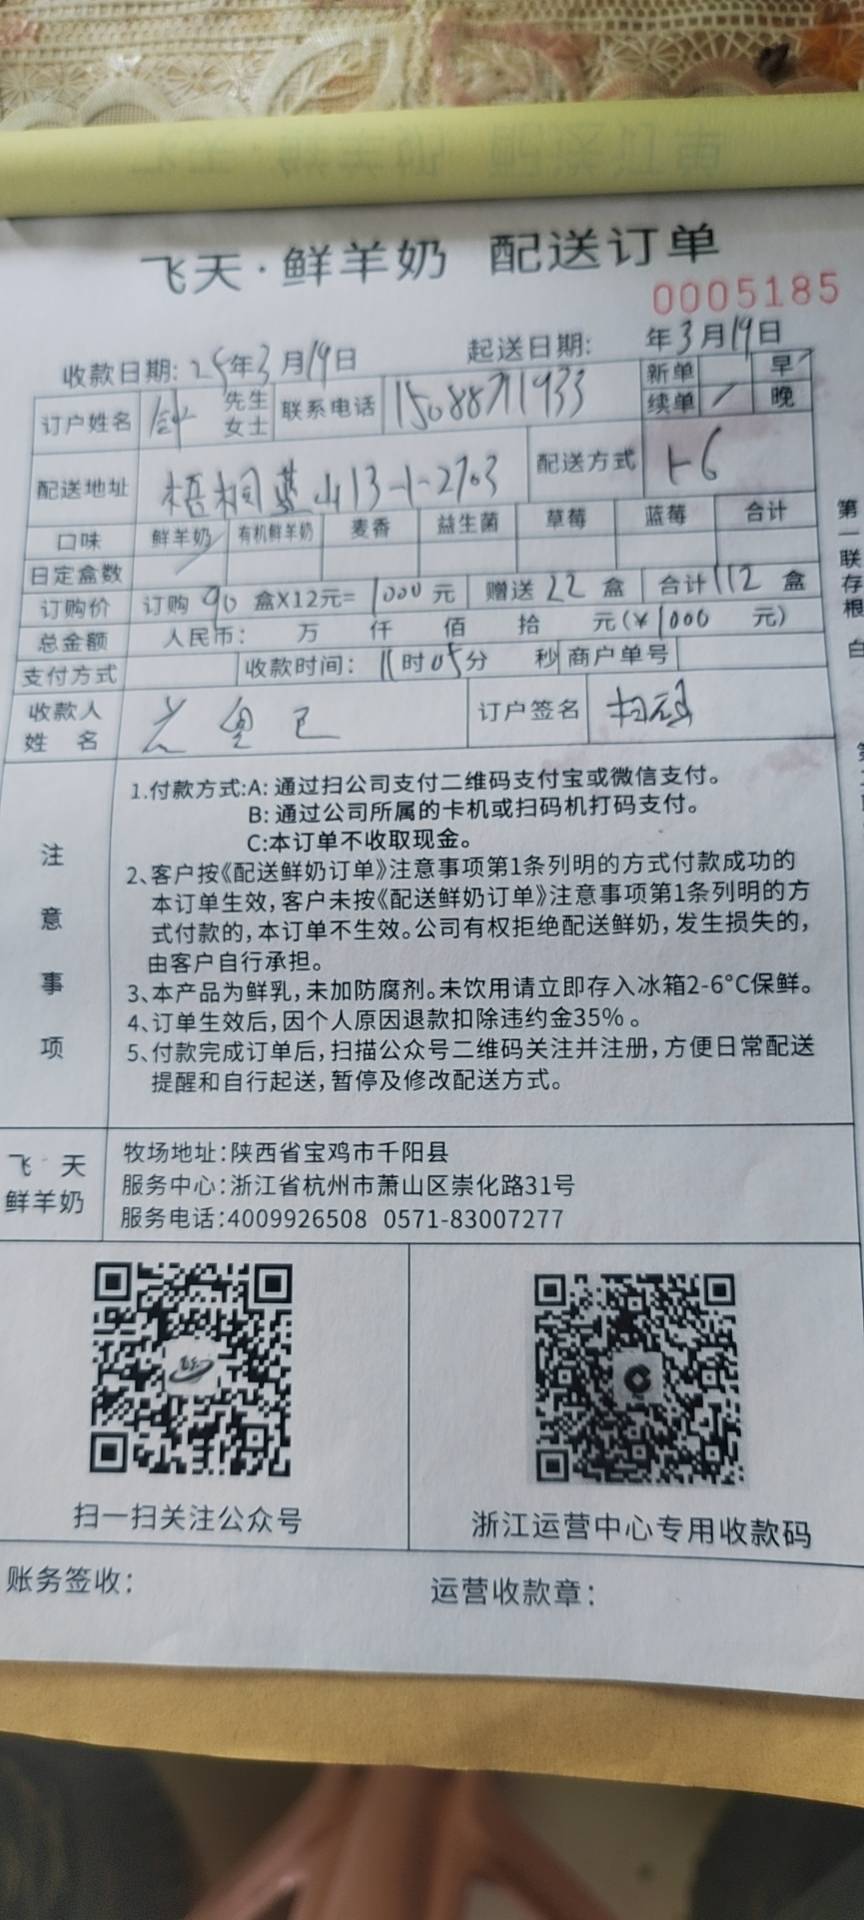 飞天·鲜羊奶 配送订单
0005185
收款日期: 25年3月19日 起送日期: 年3月19日
订户姓名 先生 女士 联系电话 15088711933 新单 早
续单 / 晚
配送地址 梧桐蓝山13-1-2703 配送方式 1-6
口味 鲜羊奶 有机鲜羊奶 麦香 益生菌 草莓 蓝莓 合计
日定盒数
订购价 订购90盒X12元=1000元 赠送22盒 合计112盒
总金额 人民币: 万 仟 佰 拾 元(¥1000 元)
支付方式 收款时间: 11时05分 秒 商户单号
收款人姓名 订户签名
注意事项
1.付款方式:A: 通过扫公司支付二维码支付宝或微信支付。
B: 通过公司所属的卡机或扫码机打码支付。
C:本订单不收取现金。
2、客户按《配送鲜奶订单》注意事项第1条列明的方式付款成功的
本订单生效,客户未按《配送鲜奶订单》注意事项第1条列明的方
式付款的,本订单不生效。公司有权拒绝配送鲜奶,发生损失的,
由客户自行承担。
3、本产品为鲜乳,未加防腐剂。未饮用请立即存入冰箱2-6°C保鲜。
4、订单生效后,因个人原因退款扣除违约金35%。
5、付款完成订单后,扫描公众号二维码关注并注册,方便日常配送
提醒和自行起送,暂停及修改配送方式。
飞天鲜羊奶
牧场地址:陕西省宝鸡市千阳县
服务中心:浙江省杭州市萧山区崇化路31号
服务电话:4009926508 0571-83007277
扫一扫关注公众号 浙江运营中心专用收款码
账务签收: 运营收款章:
第一联存根 白